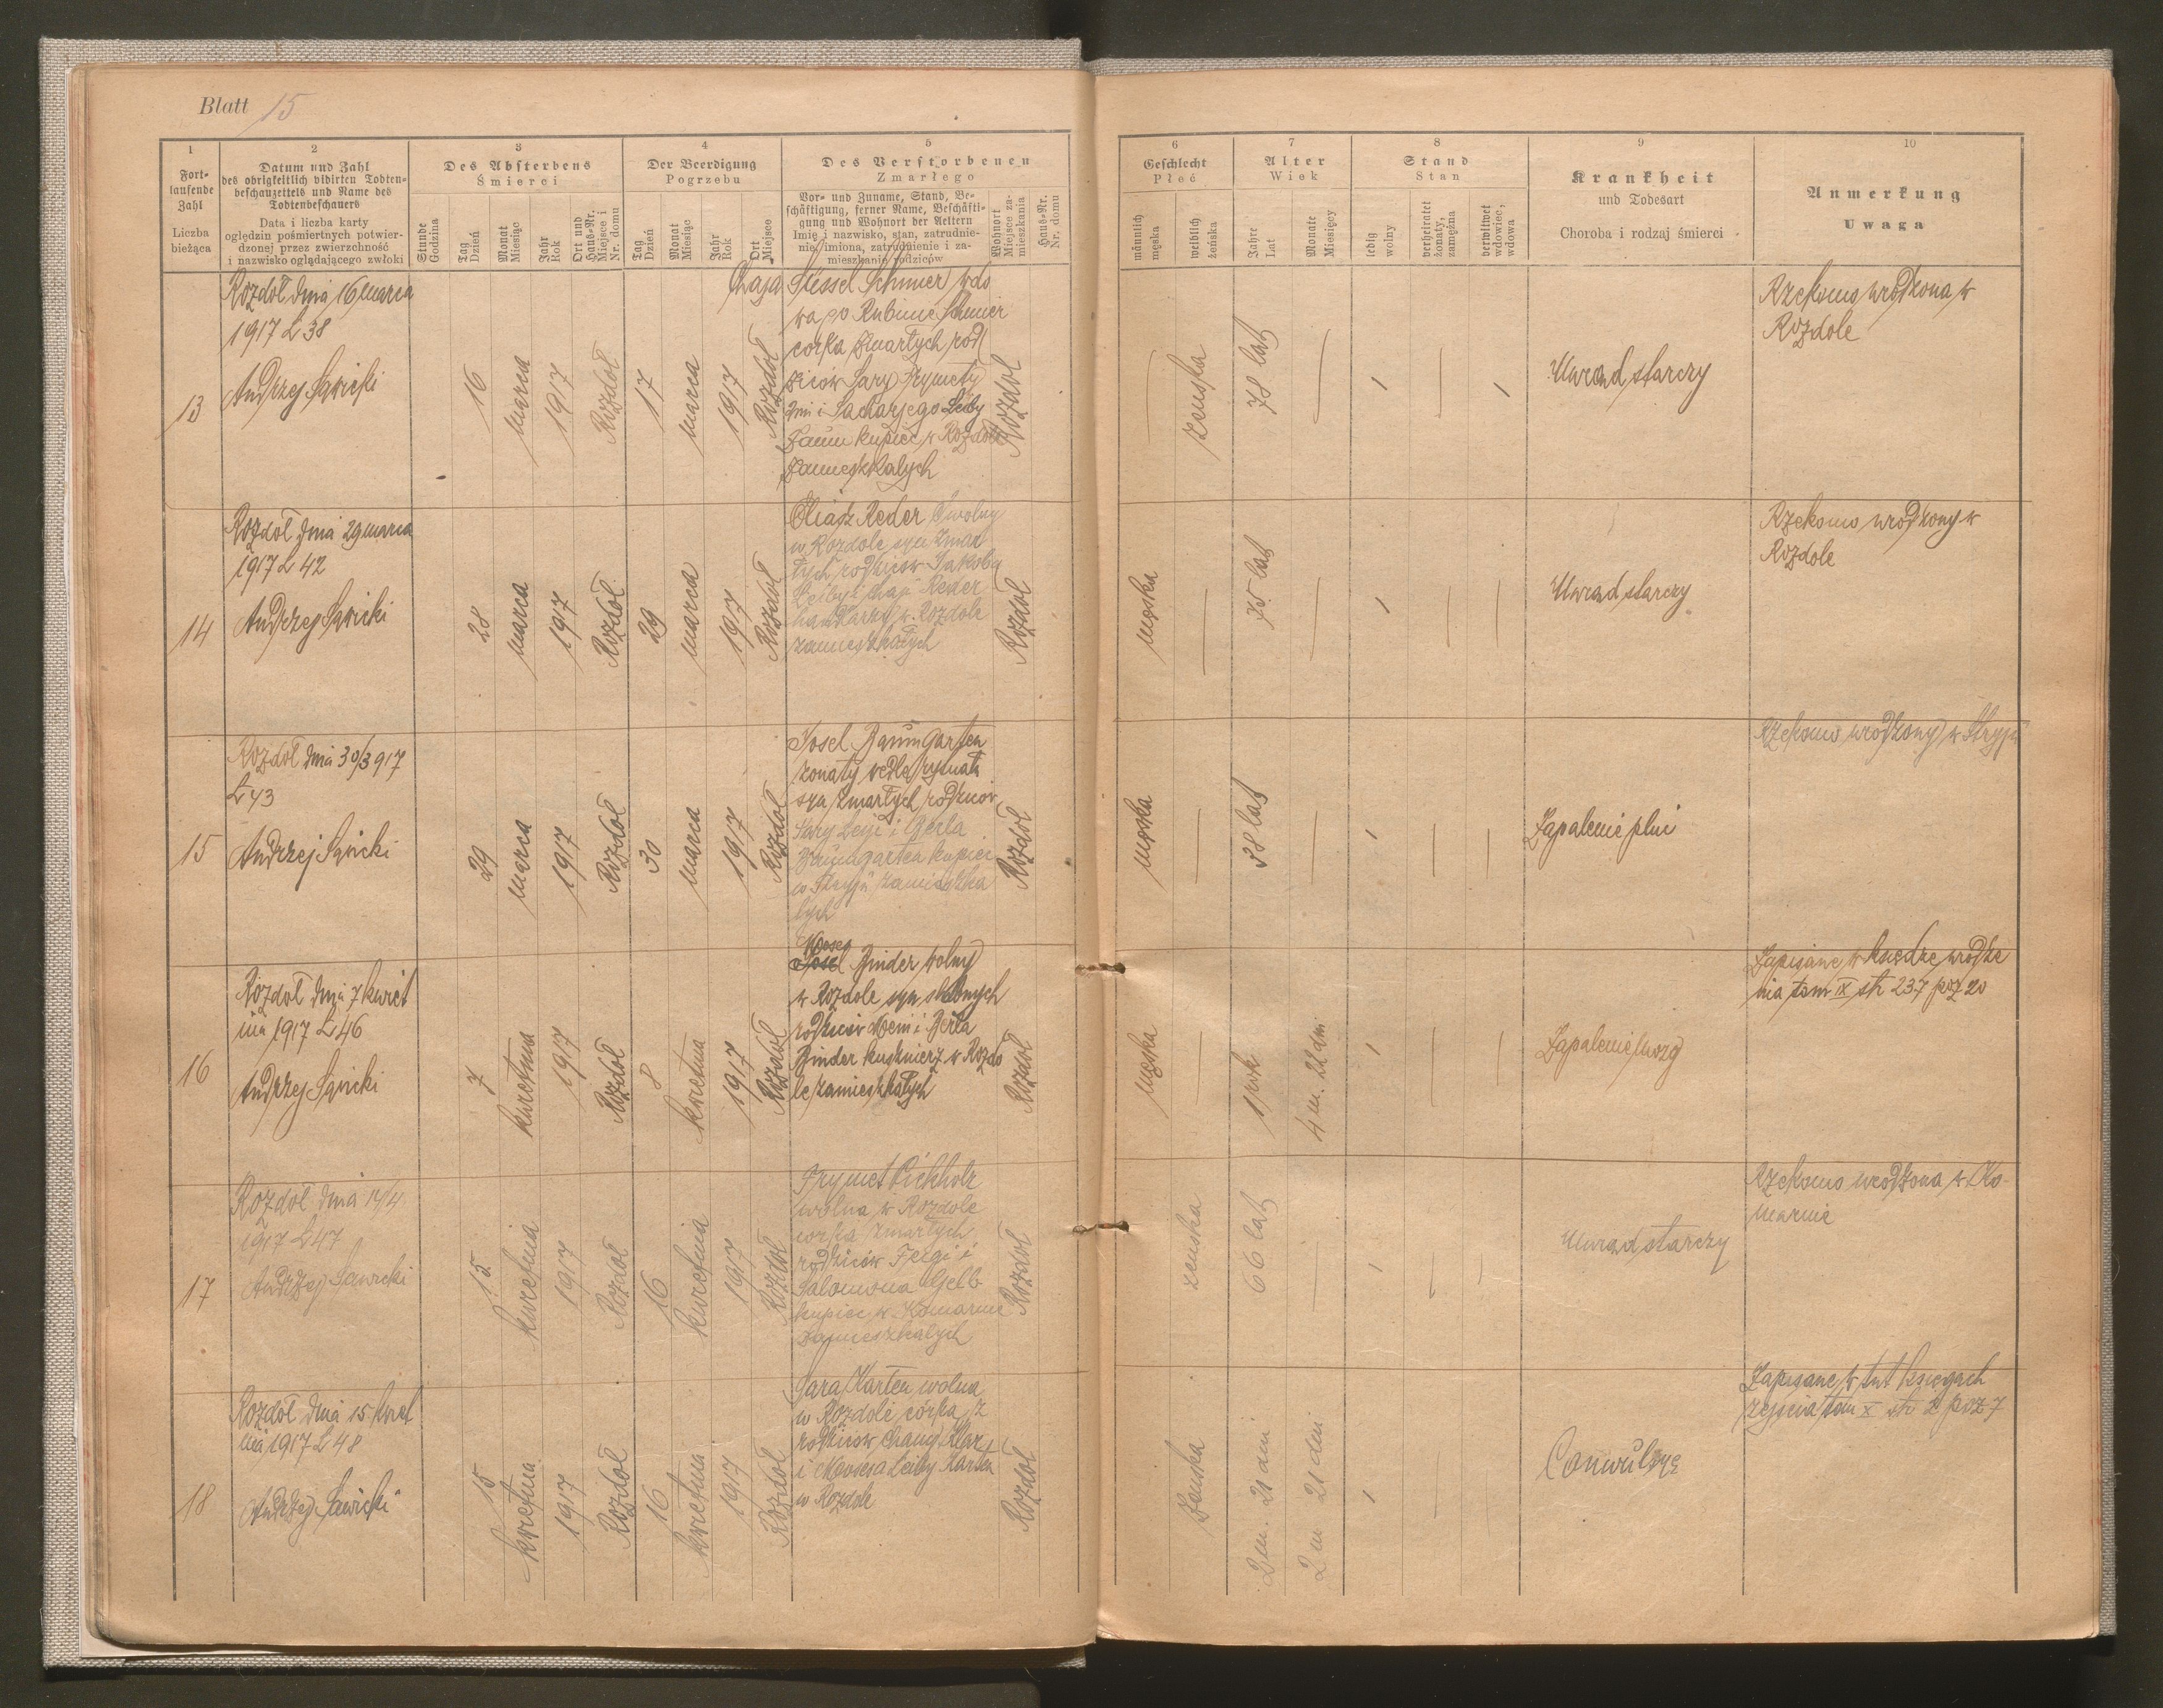 Blatt 15
1
Fort-
laufende
Zahl
Liczba
bieżąca
2
Datum und Zahl
des obrigkeitlich vidirten Todten-
beschauzettels und Name des
Todtenbeschauers
Data i liczba karty
oględzin pośmiertnych potwier-
dzonej przez zwierzchność
i nazwisko oglądającego zwłoki
3
Des Absterbens
Śmierci
Stunde
Godzina
Tag
Dzień
Monat
Miesiąc
Jahr
Rok
Ort und
Haus-Nr.
Miejsce i
Nr. domu
4
Der Beerdigung
Pogrzebu
Tag
Dzień
Monat
Miesiąc
Jahr
Rok
Ort
Miejsce
5
Des Verstorbenen
Zmarłego
Vor- und Zuname, Stand, Be-
schäftigung, ferner Name, Beschäfti-
gung und Wohnort der Aeltern
Imię i nazwisko, stan, zatrudnie-
nie, imiona, zatrudnienie i za-
mieszkanie rodziców
Wohnort
Miejsce za-
mieszkania
Haus-Nr.
Nr. domu
6
Geschlecht
Płeć
männlich
męska
weiblich
żeńska
7
Alter
Wiek
Jahre
Lat
Monate
Miesięcy
8
Stand
Stan
ledig
wolny
verheiratet
żonaty,
zamężna
verwitwet
wdowiec,
wdowa
9
Krankheit
und Todesart
Choroba i rodzaj śmierci
10
Anmerkung
Uwaga
13
Rozdół dnia 16 marca
1917 L 38
Andrzej Sawicki
16
marca
1917
Rozdół
17
marca
1917
Rozdół
Chaja Süssel Schmer wdo
wa po Rubinie Schmer
córka zmarłych rod
ziców Sary Frymety
i Sacharjego Leiby
Baum kupiec w Rozdole
zamieszkałych
Rozdół
żeńska
78 lat
Uwiąd starczy
Rzekomo urodzona w
Rozdole
14
Rozdół dnia 29 marca
1917 L 42
Andrzej Sawicki
28
marca
1917
Rozdół
29
marca
1917
Rozdół
Eliasz Reder wolny
w Rozdole syn zmar
łych rodziców Jakoba
Leiby i Chaji Reder
handlarzy w Rozdole
zamieszkałych
Rozdół
męska
75 lat
Uwiąd starczy
Rzekomo urodzony w
Rozdole
15
Rozdół dnia 30/3 917
L 43
Andrzej Sawicki
29
marca
1917
Rozdół
30
marca
1917
Rozdół
Josel Baumgarten
żonaty wedle rytuału
syn zmarłych rodziców
Sary Leji i Berla
Baumgarten kupiec
w Stryju zamieszka
łych
Rozdół
męska
38 lat
Zapalenie płuc
Rzekomo urodzony w Stryju
16
Rozdół dnia 7 kwiet
nia 1917 L 46
Andrzej Sawicki
7
kwietnia
1917
Rozdół
8
kwietnia
1917
Rozdół
Josel Binder wolny
w Rozdole syn ślubnych
rodziców i Berla
Binder kuśnierz w Rozdo
le zamieszkałych
Rozdół
męska
1 rok
4 m. 22 dni
Zapalenie mózg
Zapisane w księdze urodze
nia tom IX str 237 poz 20
17
Rozdół dnia 14/4
1917 L 47
Andrzej Sawicki
15
kwietnia
1917
Rozdół
16
kwietnia
1917
Rozdół
Frymet Eichholz
wolna w Rozdole
córka zmarłych
rodziców Feigi i
Salomona Gelb
kupiec w Komarnie
zamieszkałych
Rozdół
żeńska
66 lat
Uwiąd starczy
Rzekomo urodzona w Ko-
marnie
18
Rozdół dnia 15 kwiet
nia 1917 L 48
Andrzej Sawicki
15
kwietnia
1917
Rozdół
16
kwietnia
1917
Rozdół
Sara Karten wolna
w Rozdole córka z
rodziców Chany Klary
i Mosesa Leiby Karten
w Rozdole
Rozdół
żeńska
2 m. 21 dni
2 m 21 dni
Conwulsye
Zapisane w tut księgach
tom X str 2 poz 7